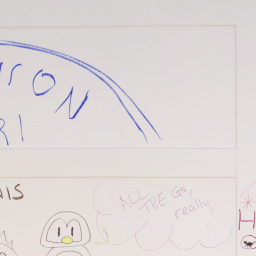 SON
RI
IS
ALL
THE Go,
really
H